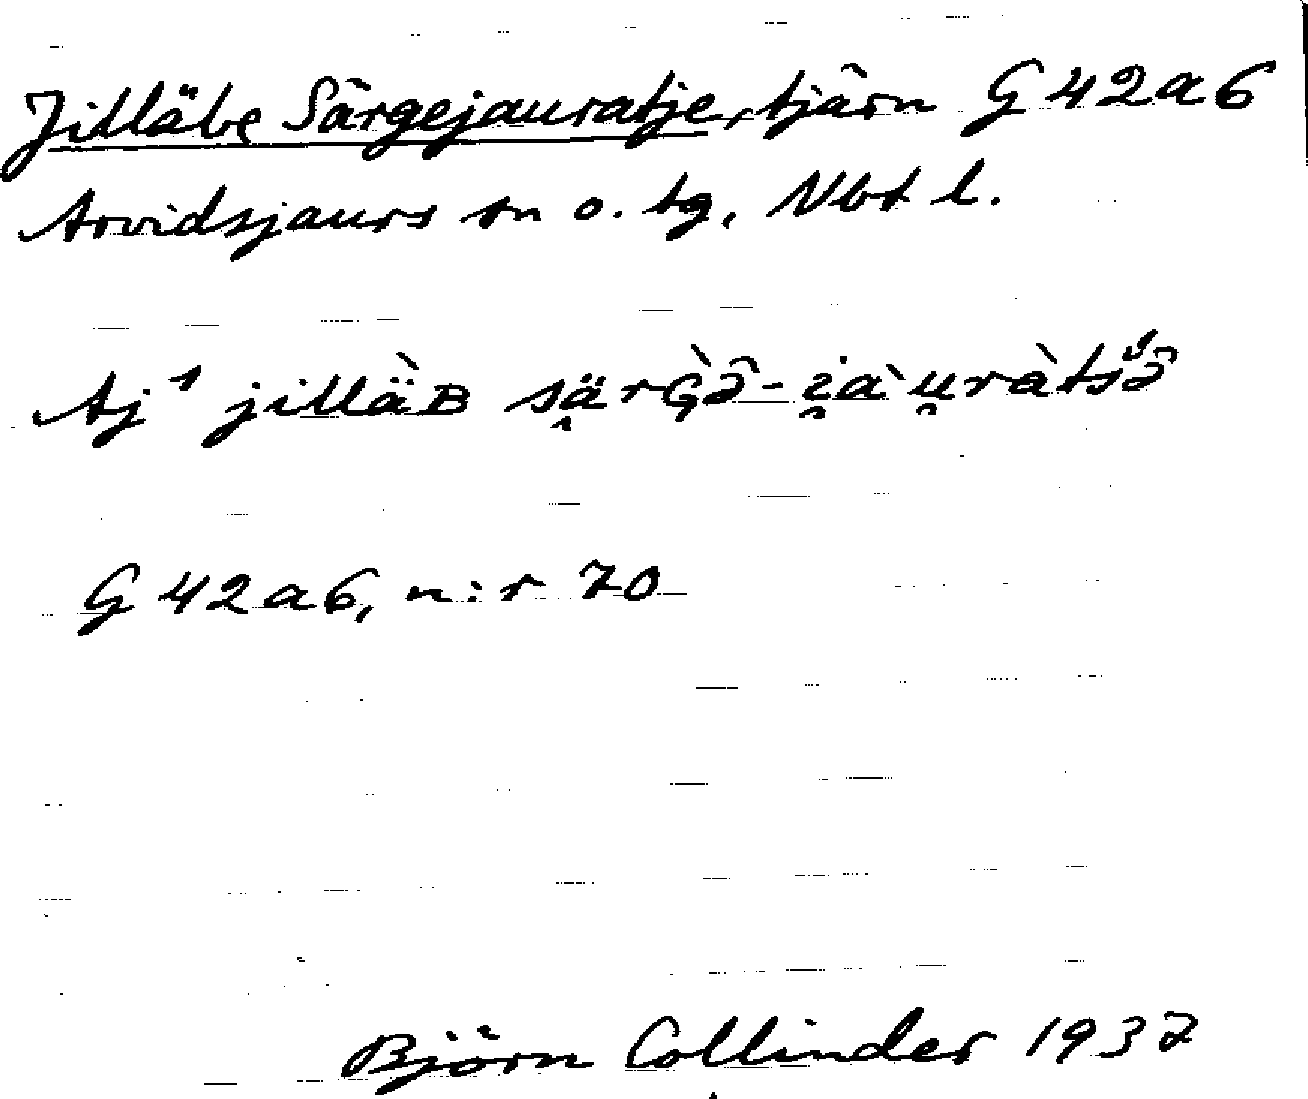 Jilläbe Särgejauratje, tjärn G 42a6
Arvidsjaurs sn o. tg, Nbt l.
Aj¹ jillä̀ʙ sä̭rɢ̀ə̑-i̯a`u̯ràtš́ə̑
G 42a6, n:r 70
Björn Collinder 1932